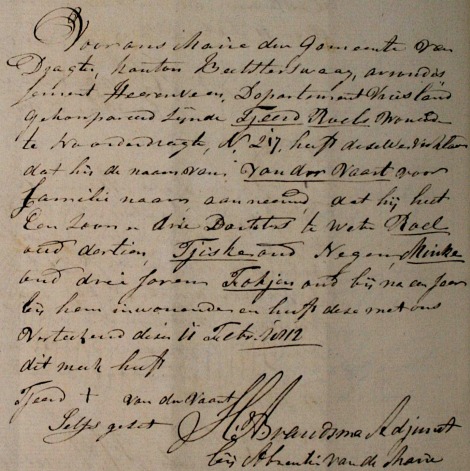 Voor ons Maire der Gemeente van
Dragten, kanton Beetsterswaag, arrondis
sement Heerenveen, Departement Vriesland
gekompareerd zijnde Tjeerd Roels wonende
te Noorderdragten, N. 217, heeft dezelve verklaard
dat hij de naam van van der Vaart voor
familie naam aanneemd, dat hij heeft
Een Zoon en drie Dochters te weten Roel
oud dertien, Tjitske oud Negen, Minke
oud drie Jaren Fokjen oud bij na een Jaar
bij hem inwonende en heeft deze met ons
vertekend dezen 11 Febr. 1812
dit merk heeft
Tjeerd + van der Vaart
Zelfs gezet H. Brandsma Adjunct
bij Absentie van de Maire